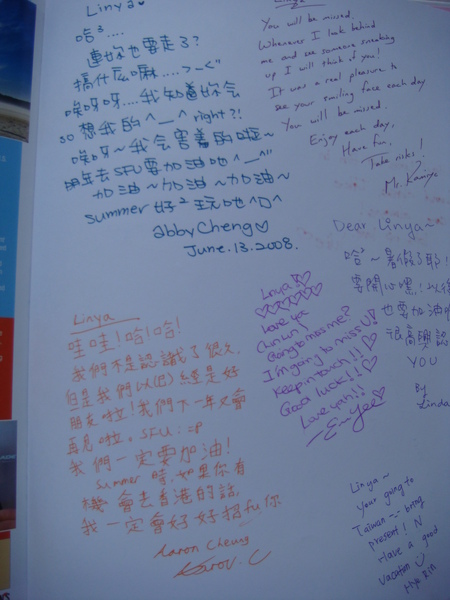 Linya♡
哈³....
連妳也要走了?
搞什么嘛....>_<"
唉呀呀....我知道妳会
so 想我的^__^ right?!
唉呀~我会害羞的啦~
明年去SFU要加油吔^__^"
加油~加油~加油~
summer 好²玩吔^口^
abby Cheng♡
June.13.2008.
Linya
You will be missed.
Whenever I look behind
me and see someone sneaking
up I will think of you!
It was a real pleasure to
see your smiling face each day
You will be missed.
Enjoy each day.
Have fun.
Take risks!
Mr.
Dear Linya~
哈³~暑假了耶!
要開心嘿!以後
也要加油
很高興認
YOU
By
Linda
Linya!!♡
♡♡♡♡♡♡
Love ya
Chin Lin
Going to miss me?
I'm going to miss U!!
Keep in touch!!♡
Good luck!!♡
Love yah!!
-E-Yee
Linya
哇哇!哈!哈!
我們不是認識了很久,
但是我們以(已)經是好
朋友啦!我們下一年又會
再見啦。SFU :=P
我們一定要加油!
summer 時,如果你有
機會去香港的話,
我一定會好好招fu你
Aaron Cheung
Aaron. C
Linya~
Your going to
Taiwan -.- bring
present! N
Have a good
vacation
Hye Bin